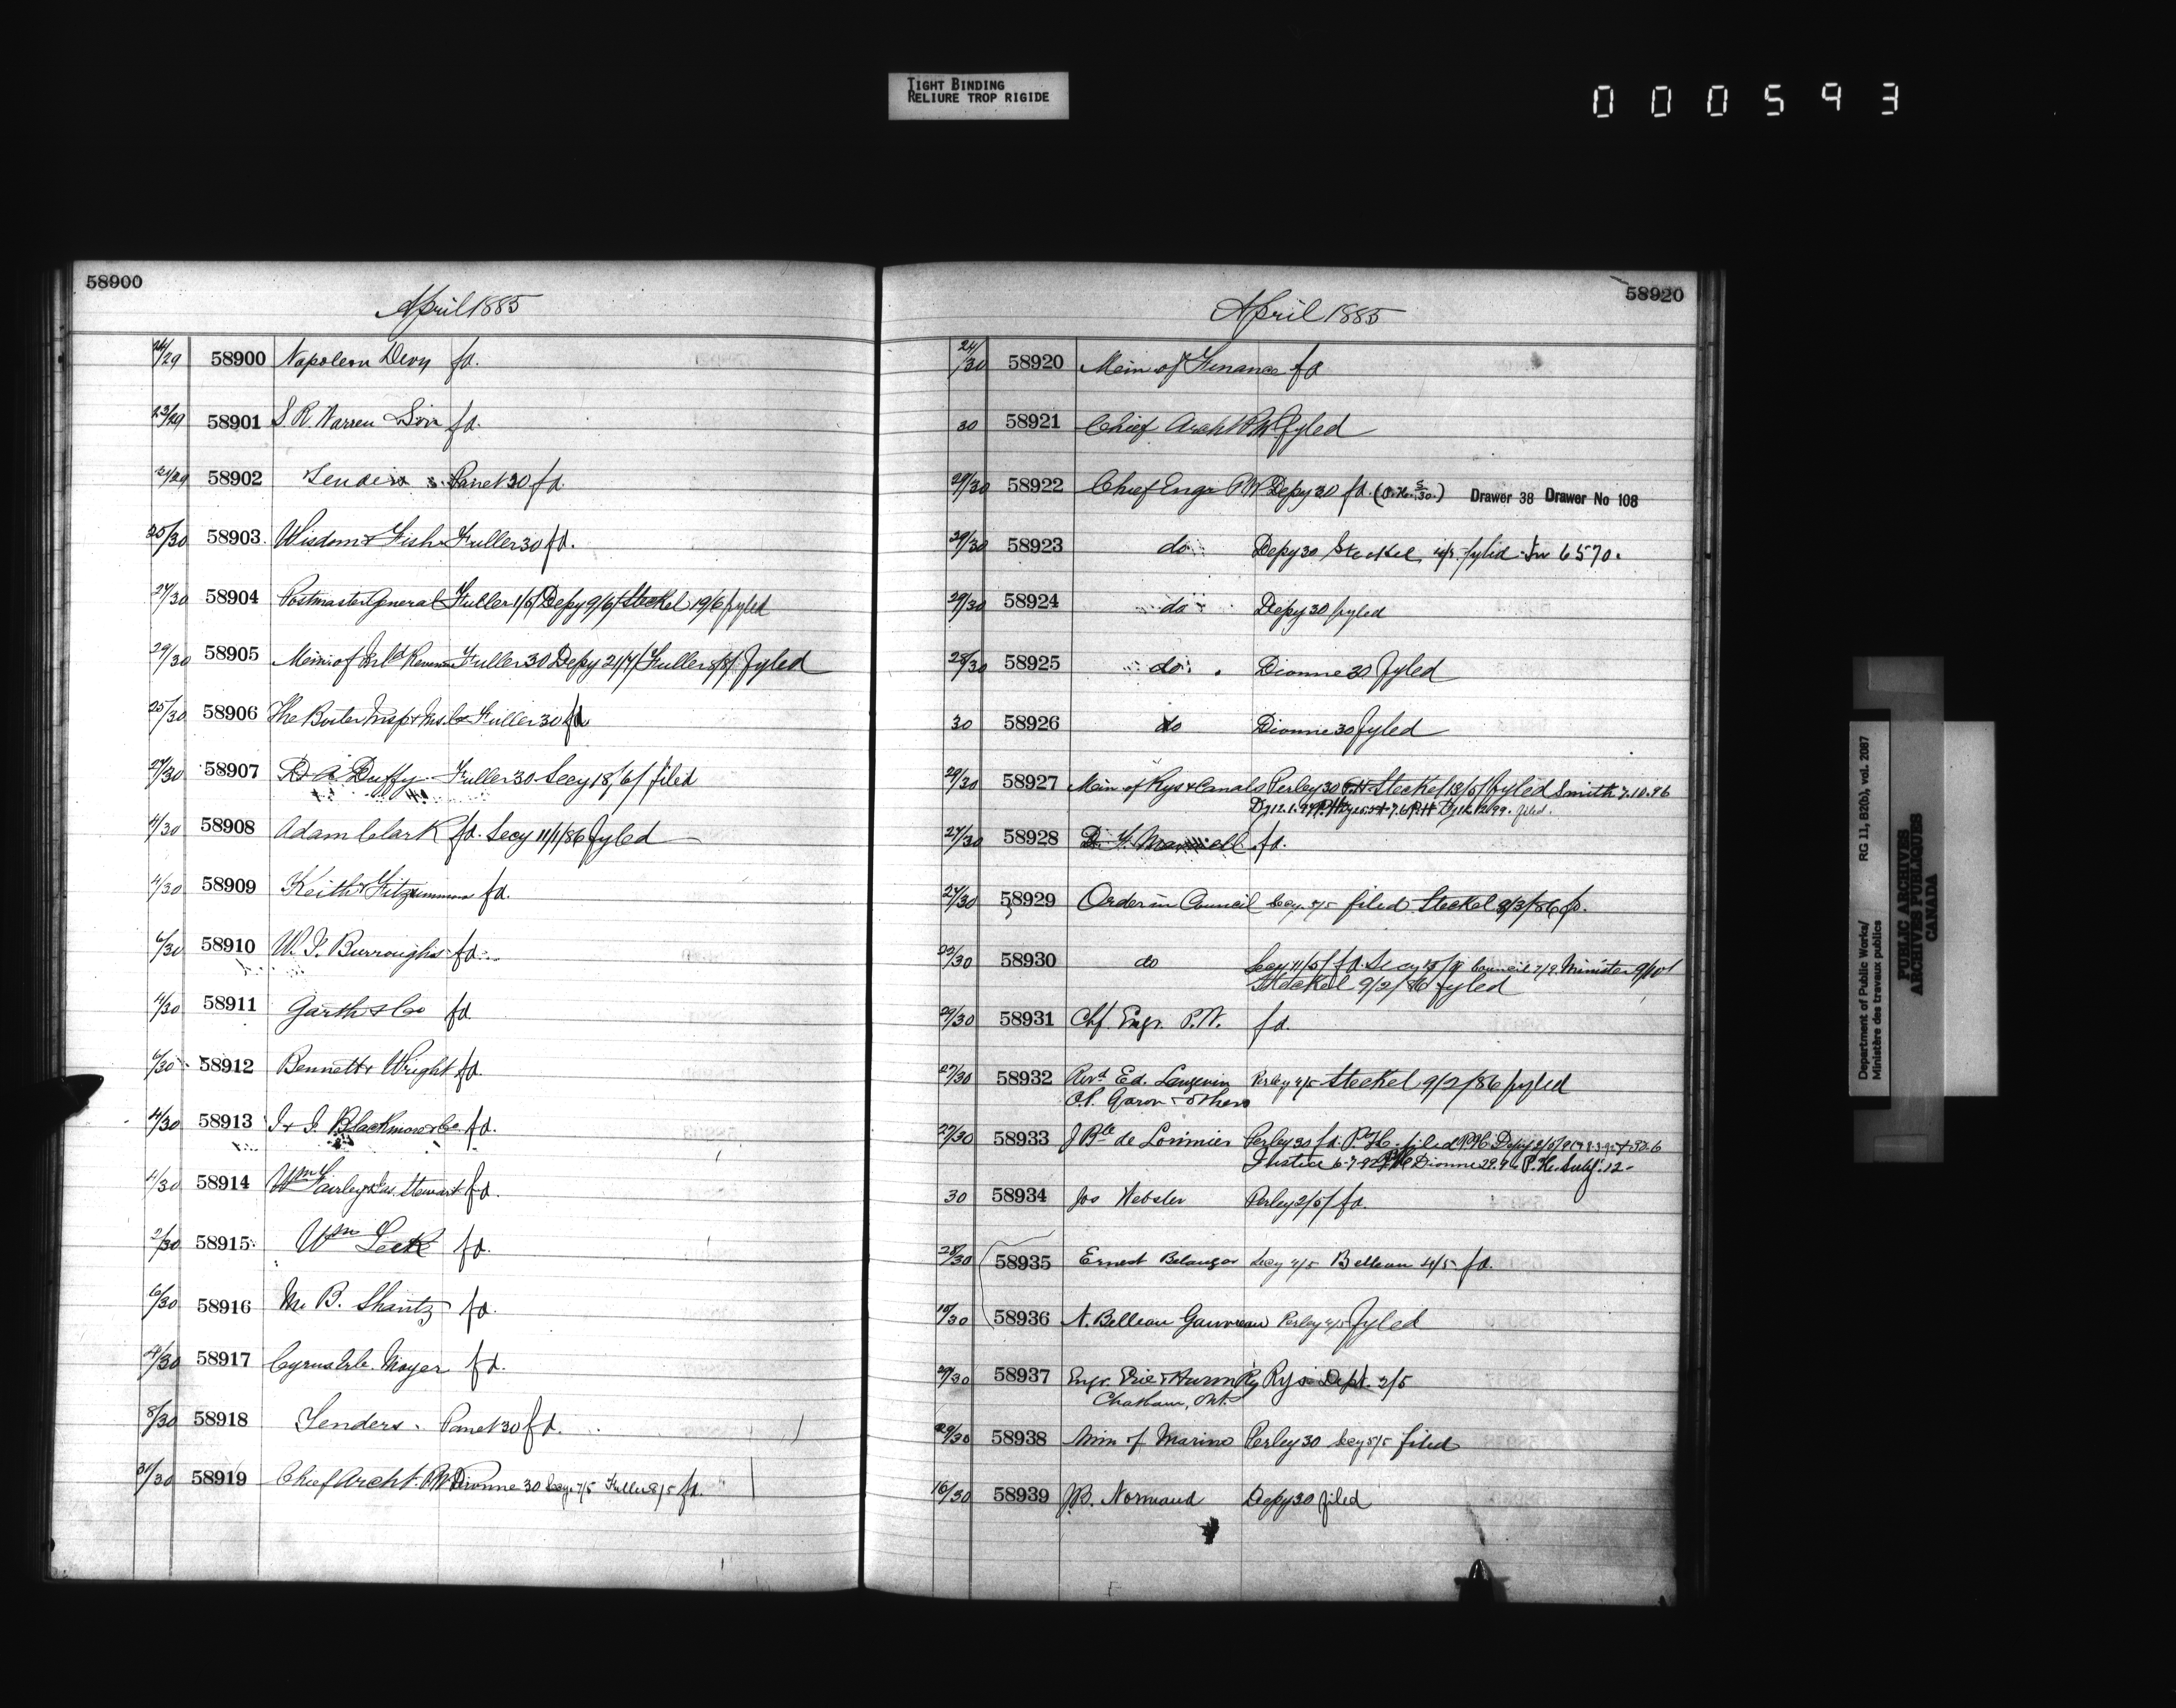 TIGHT BINDING
RELIURE TROP RIGIDE
000593
58900
April 1885
24/29 58900 Napoleon Devy fd.
23/29 58901 S. R. Warren & Son fd.
21/29 58902 Tenders Panet 30 fd.
25/30 58903 Wisdom & Fish Fuller 30 fd.
27/30 58904 Postmaster General Fuller 1/5/ Depy 9/6/ Steckel 19/6 fyled
29/30 58905 Min of Inld Revenue Fuller 30 Depy 21/7/ Fuller 8/8/ fyled
25/30 58906 The Boiler Insp & Ins. Co Fuller 30 fd
27/30 58907 D. A. Duffy Fuller 30 Secy 18/6/ filed
4/30 58908 Adam Clark fd. Secy 11/1/86 fyled
4/30 58909 Keith & Fitzsimmons fd.
6/30 58910 W. F. Burroughs fd.
4/30 58911 Garth & Co fd.
6/30 58912 Bennett & Wright fd.
4/30 58913 Blackmore & Co fd.
4/30 58914 Wm Fairley & Jas. Stewart fd.
2/30 58915 Wm Leek fd.
6/30 58916 M. B. Shantz fd.
4/30 58917 Cyrus Mayer fd.
8/30 58918 Tenders Panet 30 fd.
58919 Chief Archt. P.W. Dionne 30 Secy 7/5 Fuller 8/5 fd.
58920
April 1885
24/30 58920 Min of Finance fd
30 58921 Chief Archt P.W. fyled
29/30 58922 Chief Engr P.W. Depy 30 fd. Drawer 38 Drawer No 108
29/30 58923 do Depy 30 Steckel fyled 6570.
29/30 58924 do Depy 30 fyled
28/30 58925 do Dionne 30 fyled
30 58926 do Dionne 30 fyled
29/30 58927 Min of Rys & Canals Perley 30 Steckel 13/5/ fyled Smith 7.10.96
58928 fd.
27/30 58929 Order in Council Secy. 5/5 filed Steckel 8/3/86 fd.
22/30 58930 do Secy 11/5/ fd. Secy Council 7/9 Minister
Steckel 9/2/86 fyled
29/30 58931 Chf. Engr. P.W. fd.
27/30 58932 Revd Ed. Langevin Perley 4/5 Steckel 9/2/86 fyled
Garon & others
27/30 58933 J Bte de Lorimier Perley 30 fd.
Justice Dionne
30 58934 Jos Webster Perley 2/5/ fd.
28/30 58935 Ernest Belanger Secy 4/5 Belleau 4/5 fd.
58936 N. Belleau Gauvreau Perley 4/5 fyled
29/30 58937 Engr. Erie & Huron Ry Rys Dept. 2/5
Chatham, Ont.
29/30 58938 Min of Marine Perley 30 Secy 5/5 filed
16/30 58939 J.B. Normand Depy 30 filed
Department of Public Works/ RG 11, B2(b), vol. 2087
Ministère des travaux publics
PUBLIC ARCHIVES
ARCHIVES PUBLIQUES
CANADA